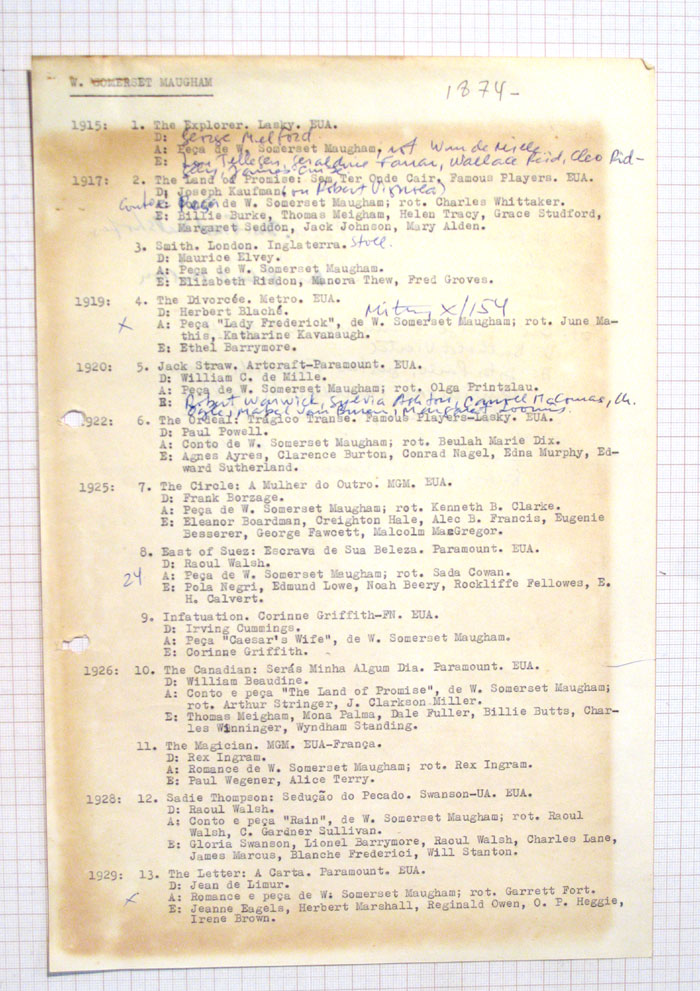 W. SOMERSET MAUGHAM
1874-
1915: 1. The Explorer. Lasky. EUA.
D: George Melford.
A: Peça de W. Somerset Maugham. rot Wm de Mille
E: Lou Tellegen, Geraldine Farrar, Wallace Reid, Cleo Rid-
ley, James
1917: 2. The Land of Promise: Sem Ter Onde Cair. Famous Players. EUA.
D: Joseph Kaufman (ou Robert Vignola)
Conto e Peça de W. Somerset Maugham; rot. Charles Whittaker.
E: Billie Burke, Thomas Meigham, Helen Tracy, Grace Studford,
Margaret Seddon, Jack Johnson, Mary Alden.
3. Smith. London. Inglaterra. Stoll.
D: Maurice Elvey.
A: Peça de W. Somerset Maugham.
E: Elizabeth Risdon, Manora Thew, Fred Groves.
1919: 4. The Divorcée. Metro. EUA.
D: Herbert Blaché. X/154
x A: Peça "Lady Frederick", de W. Somerset Maugham; rot. June Ma-
this, Katharine Kavanaugh.
E: Ethel Barrymore.
1920: 5. Jack Straw. Artcraft-Paramount. EUA.
D: William C. de Mille.
A: Peça de W. Somerset Maugham; rot. Olga Printzlau.
E: Robert Warwick, Sylvia Ashton, Carroll McComas, Ch.
Ogle, Mabel Van Buren, Margaret Loomis.
1922: 6. The Ordeal: Trágico Transe. Famous Players-Lasky. EUA.
D: Paul Powell.
A: Conto de W. Somerset Maugham; rot. Beulah Marie Dix.
E: Agnes Ayres, Clarence Burton, Conrad Nagel, Edna Murphy, Ed-
ward Sutherland.
1925: 7. The Circle: A Mulher do Outro. MGM. EUA.
D: Frank Borzage.
A: Peça de W. Somerset Maugham; rot. Kenneth B. Clarke.
E: Eleanor Boardman, Creighton Hale, Alec B. Francis, Eugenie
Besserer, George Fawcett, Malcolm MacGregor.
8. East of Suez: Escrava de Sua Beleza. Paramount. EUA.
D: Raoul Walsh.
24 A: Peça de W. Somerset Maugham; rot. Sada Cowan.
E: Pola Negri, Edmund Lowe, Noah Beery, Rockliffe Fellowes, E.
H. Calvert.
9. Infatuation. Corinne Griffith-FN. EUA.
D: Irving Cummings.
A: Peça "Caesar's Wife", de W. Somerset Maugham.
E: Corinne Griffith.
1926: 10. The Canadian: Serás Minha Algum Dia. Paramount. EUA.
D: William Beaudine.
A: Conto e peça "The Land of Promise", de W. Somerset Maugham;
rot. Arthur Stringer, J. Clarkson Miller.
E: Thomas Meigham, Mona Palma, Dale Fuller, Billie Butts, Char-
les Winninger, Wyndham Standing.
11. The Magician. MGM. EUA-França.
D: Rex Ingram.
A: Romance de W. Somerset Maugham; rot. Rex Ingram.
E: Paul Wegener, Alice Terry.
1928: 12. Sadie Thompson: Sedução do Pecado. Swanson-UA. EUA.
D: Raoul Walsh.
A: Conto e peça "Rain", de W. Somerset Maugham; rot. Raoul
Walsh, C. Gardner Sullivan.
E: Gloria Swanson, Lionel Barrymore, Raoul Walsh, Charles Lane,
James Marcus, Blanche Frederici, Will Stanton.
1929: 13. The Letter: A Carta. Paramount. EUA.
D: Jean de Limur.
x A: Romance e peça de W. Somerset Maugham; rot. Garrett Fort.
E: Jeanne Eagels, Herbert Marshall, Reginald Owen, O. P. Heggie,
Irene Brown.